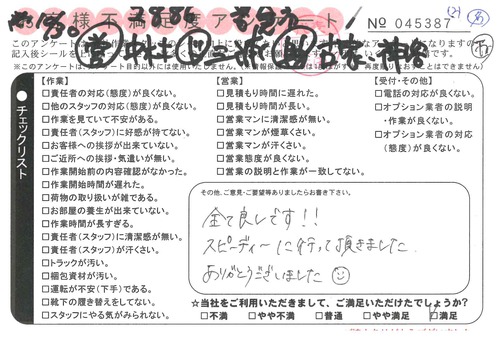 様不満足度アンケート
№ 045387
【作業】
□責任者の対応(態度)が良くない。
□他のスタッフの対応(態度)が良くない。
□作業を見ていて不安がある。
□責任者(スタッフ)に好感が持てない。
□お客様への挨拶が出来ていない。
□ご近所への挨拶・気遣いが無い。
□作業開始前の内容確認がなかった。
□作業開始時間が遅れた。
□荷物の取り扱いが雑である。
□お部屋の養生が出来ていない。
□作業時間が長すぎる。
□責任者(スタッフ)に清潔感が無い。
□責任者(スタッフ)が汗くさい。
□トラックが汚い。
□梱包資材が汚い。
□運転が不安(下手)である。
□靴下の履き替えをしてない。
□スタッフにやる気がみられない。
【営業】
□見積もり時間に遅れた。
□見積もり時間が長い。
□営業マンに清潔感が無い。
□営業マンが煙草くさい。
□営業マンが汗くさい。
□営業態度が良くない。
□営業の説明と作業が一致してない。
【受付・その他】
□電話の対応が良くない。
□オプション業者の説明
・作業が良くない。
□オプション業者の対応
(態度)が良くない。
チェックリスト
その他、ご意見・ご要望等ありましたらお書き下さい。
全て良しです!!
スピーディーに行って頂きました
ありがとうございました
☆当社をご利用いただきまして、ご満足いただけたでしょうか?
□不満 □やや不満 □普通 □やや満足 □満足